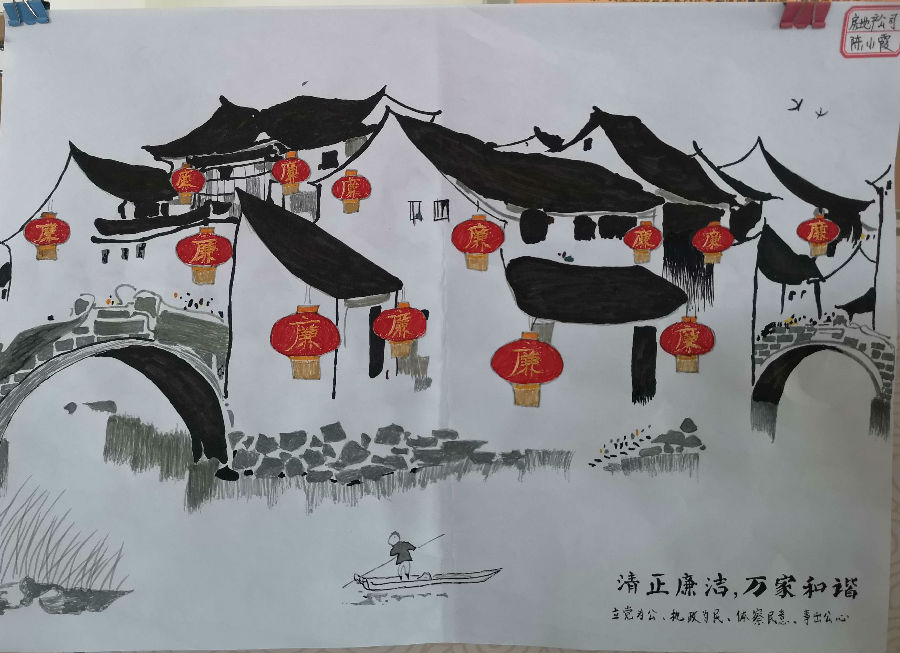 房地产公司
陈小霞
廉
廉
廉
廉
廉
廉
廉
廉
廉
廉
廉
廉
廉
清正廉洁,万家和谐
立党为公、执政为民、体察民意、事出公心